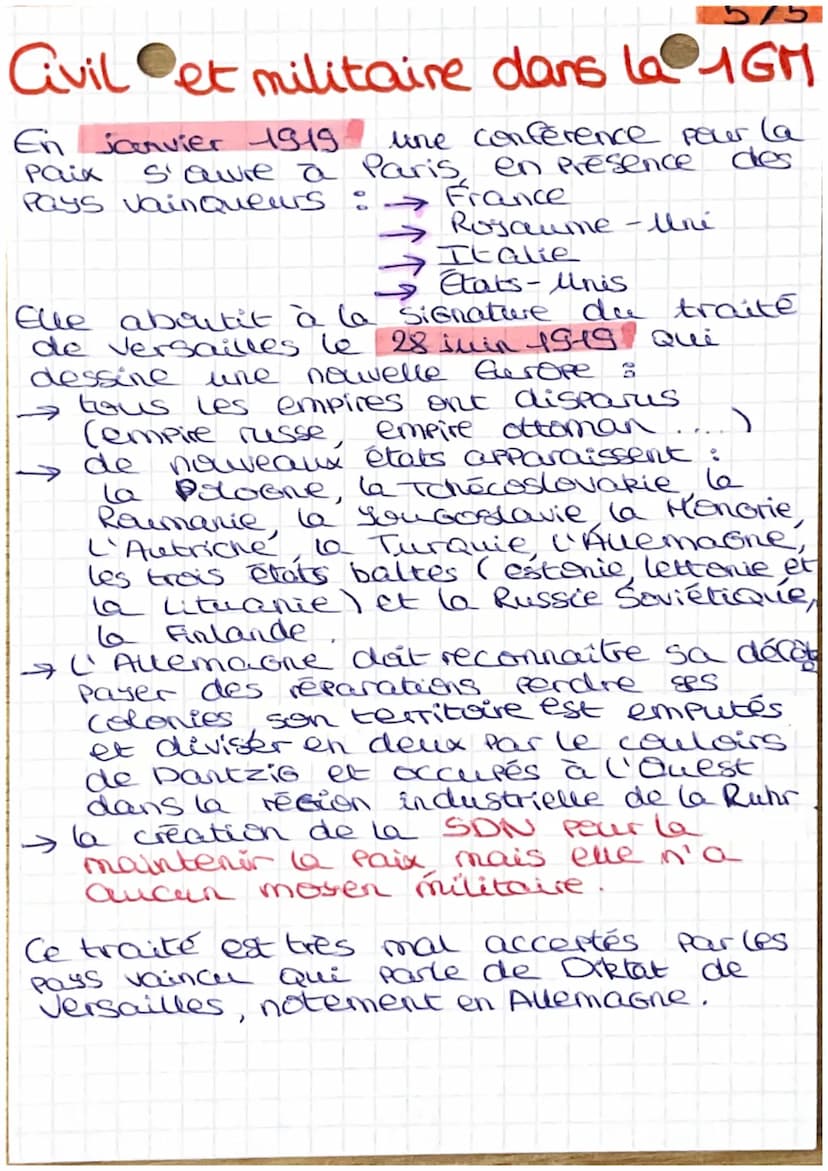 5/5
Civil et militaire dans la 1GM
En janvier 1919 une conférence pour la
paix s'ouvre à Paris, en présence des
pays vainqueurs : → France
→ Royaume-Uni
→ Italie
→ États-Unis
Elle aboutit à la signature du traité
de Versailles le 28 juin 1919 qui
dessine une nouvelle Europe :
→ tous les empires ont disparus
(empire russe, empire ottoman ....)
→ de nouveaux états apparaissent :
la Pologne, la Tchécoslovakie, la
Roumanie, la Yougoslavie la Hongrie,
L'Autriche, la Turquie, l'Allemagne,
les trois états baltes (estonie, lettonie et
la Lituanie) et la Russie Soviétique,
la Finlande.
→ L'Allemagne doit reconnaître sa défaite
payer des réparations perdre ses
colonies, son territoire est emputés
et diviser en deux par le couloirs
de Dantzig et occupés à l'Ouest
dans la région industrielle de la Ruhr.
→ la création de la SDN pour la
maintenir la paix, mais elle n'a
aucun moyen militaire.
Ce traité est très mal acceptés par les
pays vaincu qui parle de Diktat de
Versailles, notement en Allemagne.